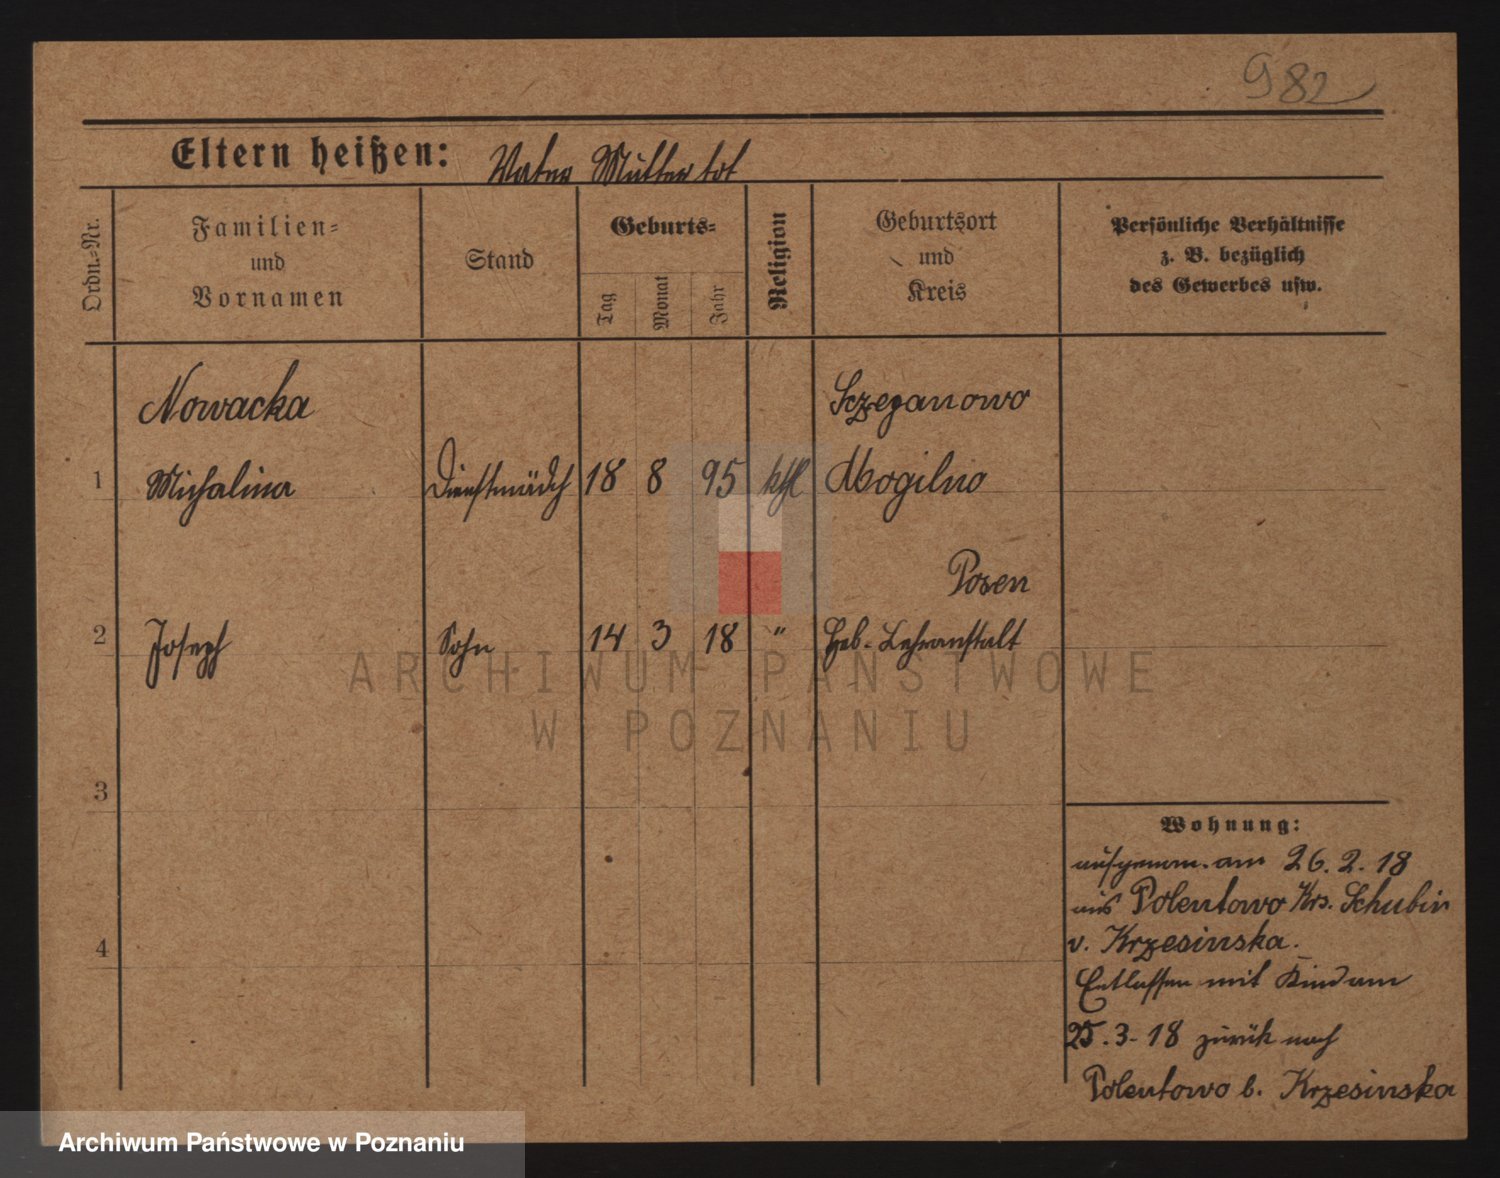 982
Eltern heißen: Vater Mutter tot
Ordn.-Nr.
Familien-
und
Vornamen
Stand
Geburts-
Tag
Monat
Jahr
Religion
Geburtsort
und
Kreis
Persönliche Verhältnisse
z. B. bezüglich
des Gewerbes usw.
Nowacka Szczepanowo
1 Michalina Dienstmädch 18 8 95 kthl Mogilno
Posen
2 Joseph Sohn 14 3 18 " Heb-Lehranstalt
3
4
Wohnung:
aufgenom. am 26.2.18
aus Polentowo Krs. Schubin
v. Krzesinska.
Entlassen mit Kind am
25.3-18 zurük nach
Polentowo b. Krzesinska
ARCHIWUM PAŃSTWOWE
W POZNANIU
Archiwum Państwowe w Poznaniu